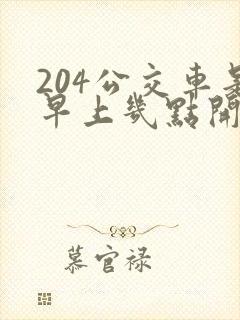 204公交車是
早上幾點開
慕官禄